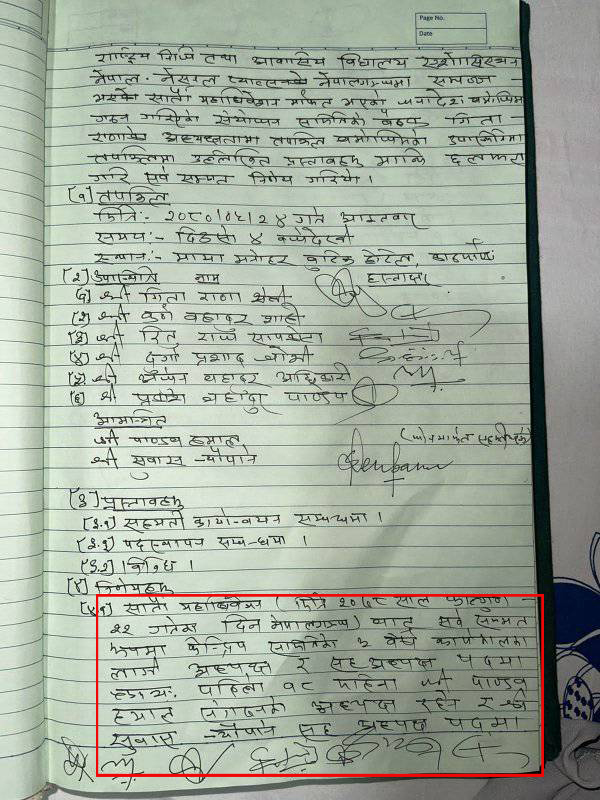 Page No.
Date
राष्ट्रिय निजि तथा आवासिय विद्यालय एशोसिएसन
नेपाल नेसनल प्याब्सनको नेपालगञ्जमा सम्पन्न
भएको सातौं महाधिवेशन मार्फत भएको जनादेश बमोजिम
गठन गरिएको संयोजन समितिको बैठक गिता
राणाको अध्यक्षतामा तपसिल बमोजिमको उपस्थितिमा
तपसिलमा उल्लेखित प्रस्तावहरु माथि छलफल
गरि सर्व सम्मत निर्णय गरियो ।
(१) तपसिल
मिति:- २०८०।०६।२४ गते आइतवार
समय:- दिउसो ४ बजेदेखी
स्थान:- मायाँ मनोहर बुटिक होटेल, काठमाण्डौ
(२) उपस्थिति नाम हस्ताक्षर
(१) श्री गिता राणा
(२) श्री कर्ण बहादुर शाही
(३) श्री रितु राज सापकोटा
(४) श्री दुर्गा प्रशाद जोशी
(५) श्री बहादुर अधिकारी
(६) श्री प्रकाश बहादुर पाण्डेय
आमन्त्रित
श्री पाण्डव हमाल
श्री सुवास न्यौपाने
(३) प्रस्तावहरु
(३.१) सहमती कार्यान्वयन सम्बन्धमा ।
(३.२) पदस्थापन सम्बन्धमा ।
(३.३) विविध ।
(४) निर्णयहरु
(४.१) सातौं महाधिवेशन (मिति २०७८ साल फाल्गुण
२२ गतेका दिन नेपालगञ्ज) बाट सर्व सम्मत
रुपमा केन्द्रिय समितिको ३ वर्षे कार्यकालका
लागि अध्यक्ष र सह अध्यक्ष पदमा
क्रमशः पहिलो १८ महिना श्री पाण्डव
हमाल संगठनको अध्यक्ष रहने र श्री
सुवास न्यौपाने सह अध्यक्ष पदमा